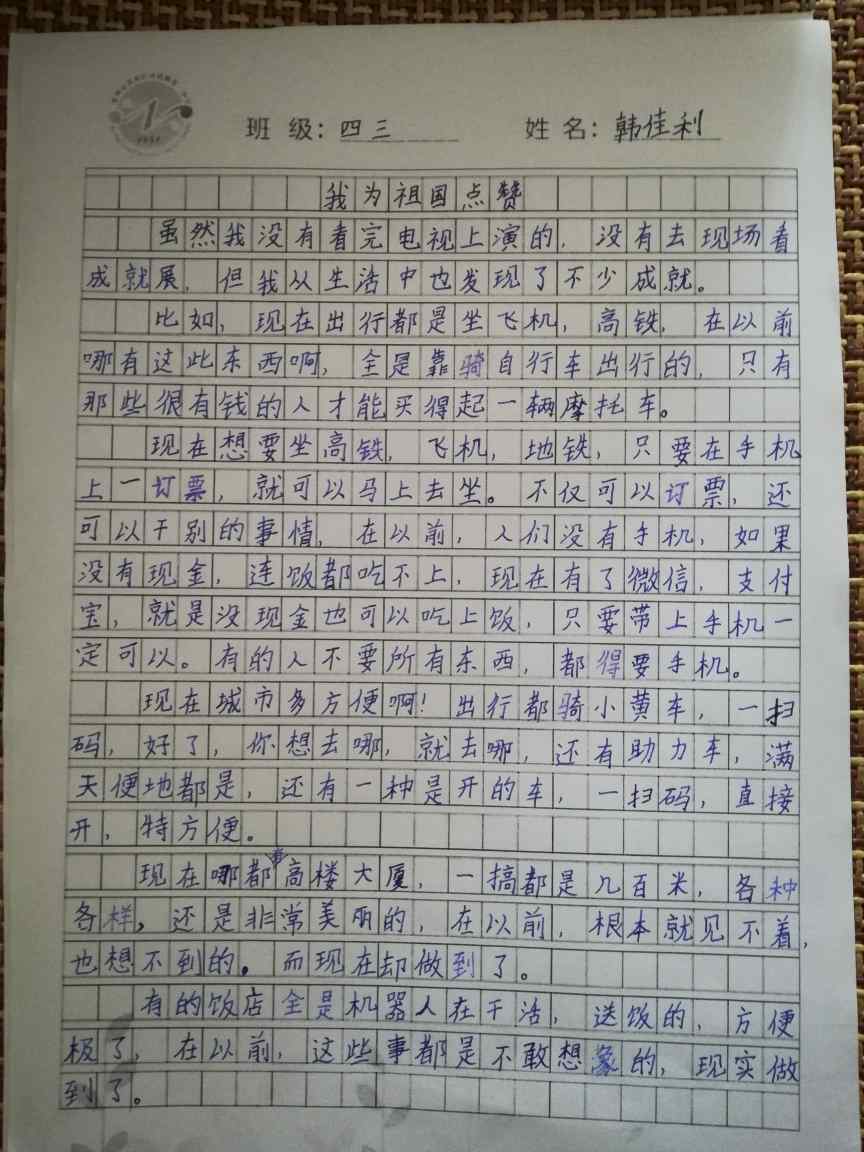 班 级：四三
姓 名：韩佳利
我为祖国点赞
虽然我没有看完电视上演的，没有去现场看
成就展，但我从生活中也发现了不少成就。
比如，现在出行都是坐飞机，高铁，在以前
哪有这此东西啊，全是靠骑自行车出行的，只有
那些很有钱的人才能买得起一辆摩托车。
现在想要坐高铁，飞机，地铁，只要在手机
上一订票，就可以马上去坐。不仅可以订票，还
可以干别的事情，在以前，人们没有手机，如果
没有现金，连饭都吃不上，现在有了微信，支付
宝，就是没现金也可以吃上饭，只要带上手机一
定可以。有的人不要所有东西，都得要手机。
现在城市多方便啊！出行都骑小黄车，一扫
码，好了，你想去哪，就去哪，还有助力车，满
天便地都是，还有一种是开的车，一扫码，直接
开，特方便。
现在哪都事高楼大厦，一搞都是几百米，各种
各样，还是非常美丽的，在以前，根本就见不着，
也想不到的。而现在却做到了。
有的饭店全是机器人在干活，送饭的，方便
极了，在以前，这些事都是不敢想象的，现实做
到了。